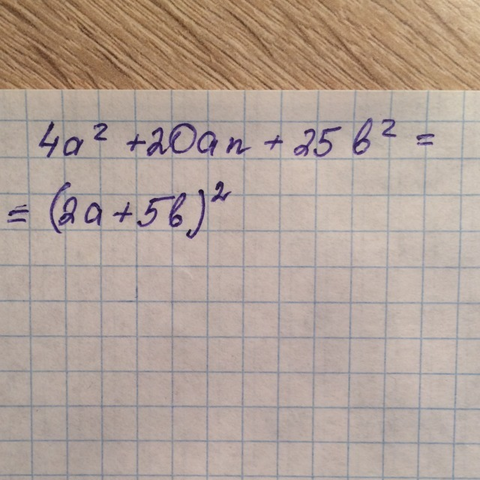 4a² + 20an + 25b² =
= (2a + 5b)²